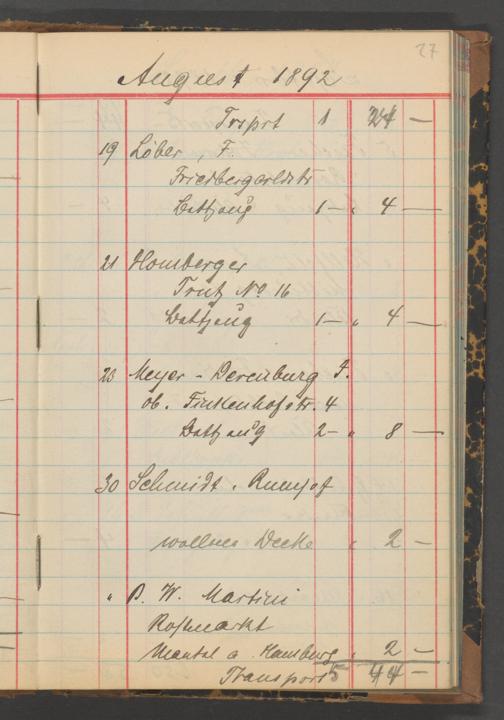 27
August 1892
Trsprt 1 24 —
19 Löber, F.
Friedbergerldstr
Bettzeug 1 — " 4 —
21 Homberger
Trutz No 16
Bettzeug 1 — " 4 —
23 Meyer - Derenburg F.
ob. Finkenhofstr. 4
Bettzeug 2 — " 8 —
30 Schmidt.
wollne Decke " 2 —
" P. W. Martini
Roßmarkt
Mantel a. Hamburg " 2 —
Transport 5 44 —